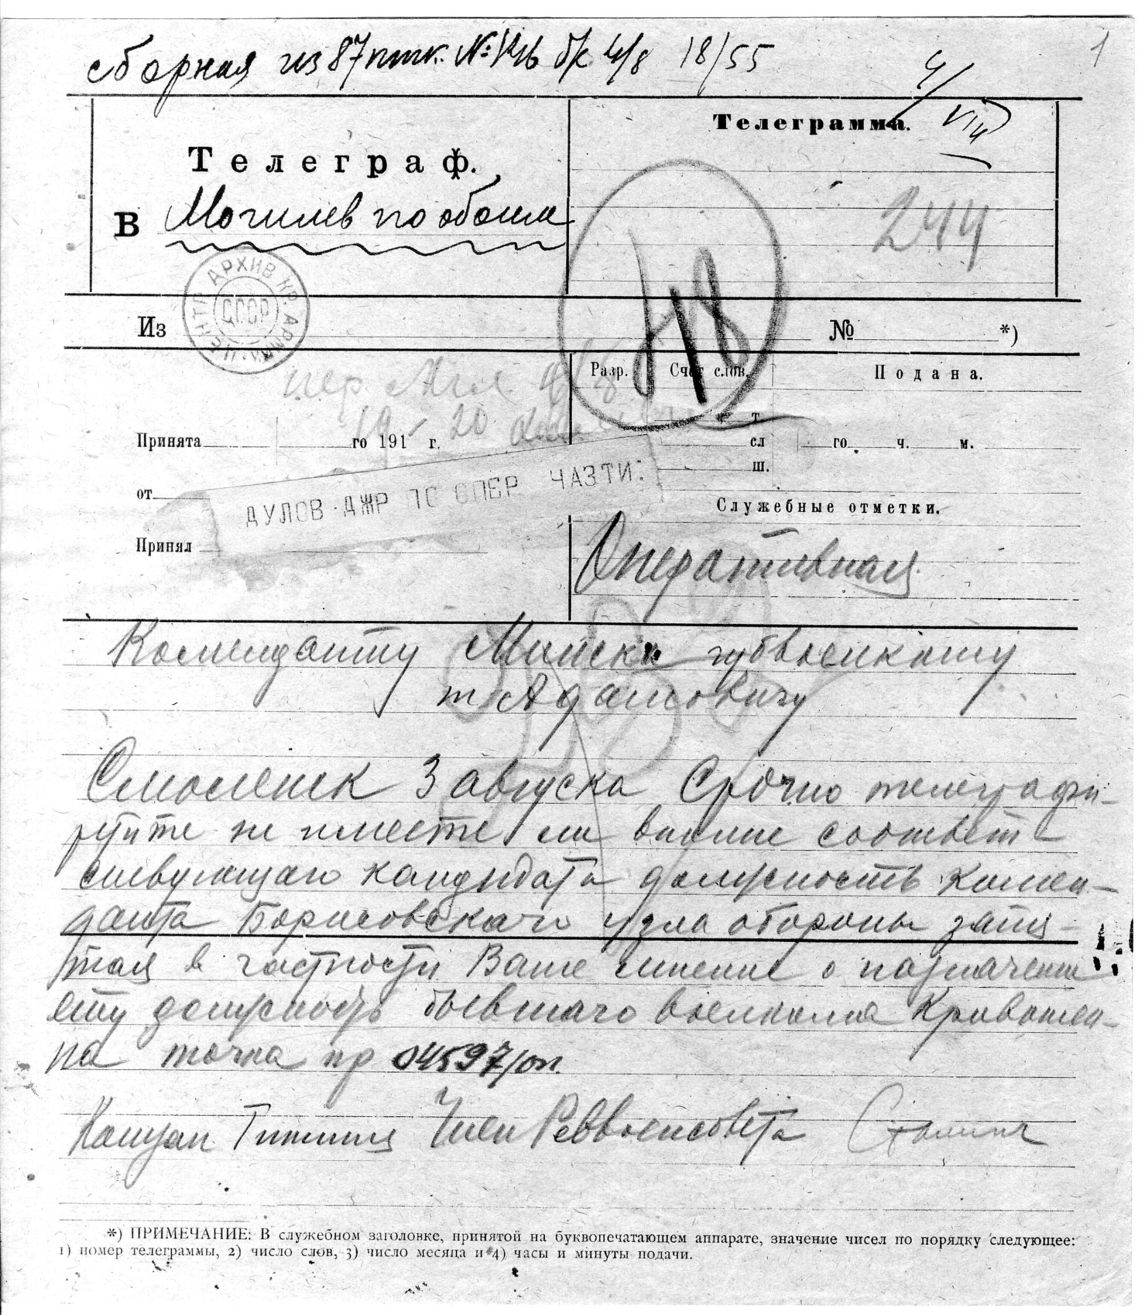 сборная из 87 птк. № б/к 4/8 18/55
1
4/VIII
Телеграф.
Телеграмма.
В Могилев по обоим
244
АРХИВ КР. АРМИИ ЦЕНТР
СССР
418
Из
№ *)
Разр. Счет слов. Подана.
пер 4/8
19 - 20
Принята го 191 г.
т.
сл
ш.
го ч. м.
от
ДУЛОВ·ДЖР ПО ОПЕР ЧАЗТИ:
Служебные отметки.
Принял
Оперативная
Коменданту Минска губвоенкому
т Адамовичу
Смоленск 3 августа Срочно телеграфи-
руйте не имеете ли ввиду соответ-
ствующаго кандидата должность комен-
данта Борисовскаго узла обороны запя-
тая в частности Ваше мнение о назначении
эту должность бывшаго военкома Кривошеи-
на точка нр 04597/оп.
Комзап Гиттис Член Реввоенсовета Сталин
*) ПРИМЕЧАНИЕ: В служебном заголовке, принятой на буквопечатающем аппарате, значение чисел по порядку следующее:
1) номер телеграммы, 2) число слов, 3) число месяца и 4) часы и минуты подачи.